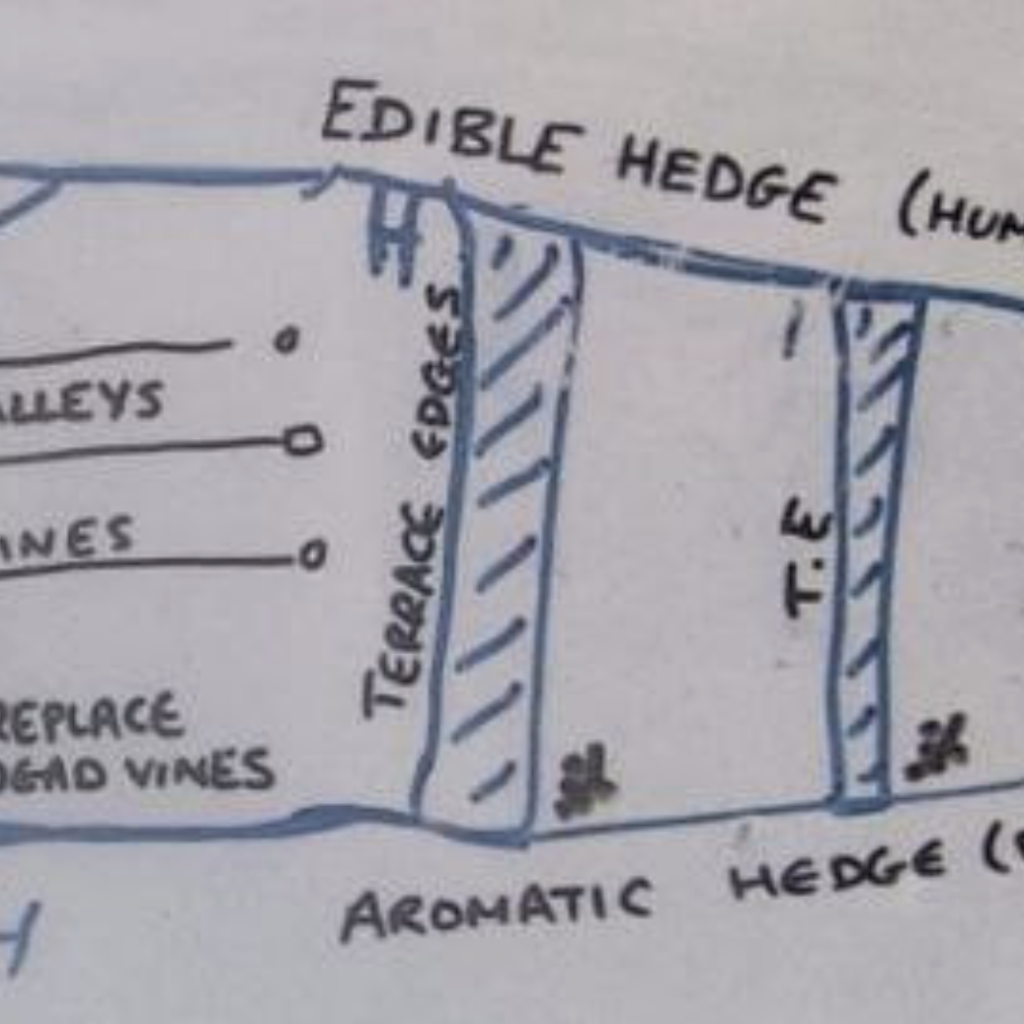 EDIBLE HEDGE (HUM
ALLEYS
INES
TERRACE EDGES
T.E
REPLACE
DEAD VINES
AROMATIC HEDGE (
H